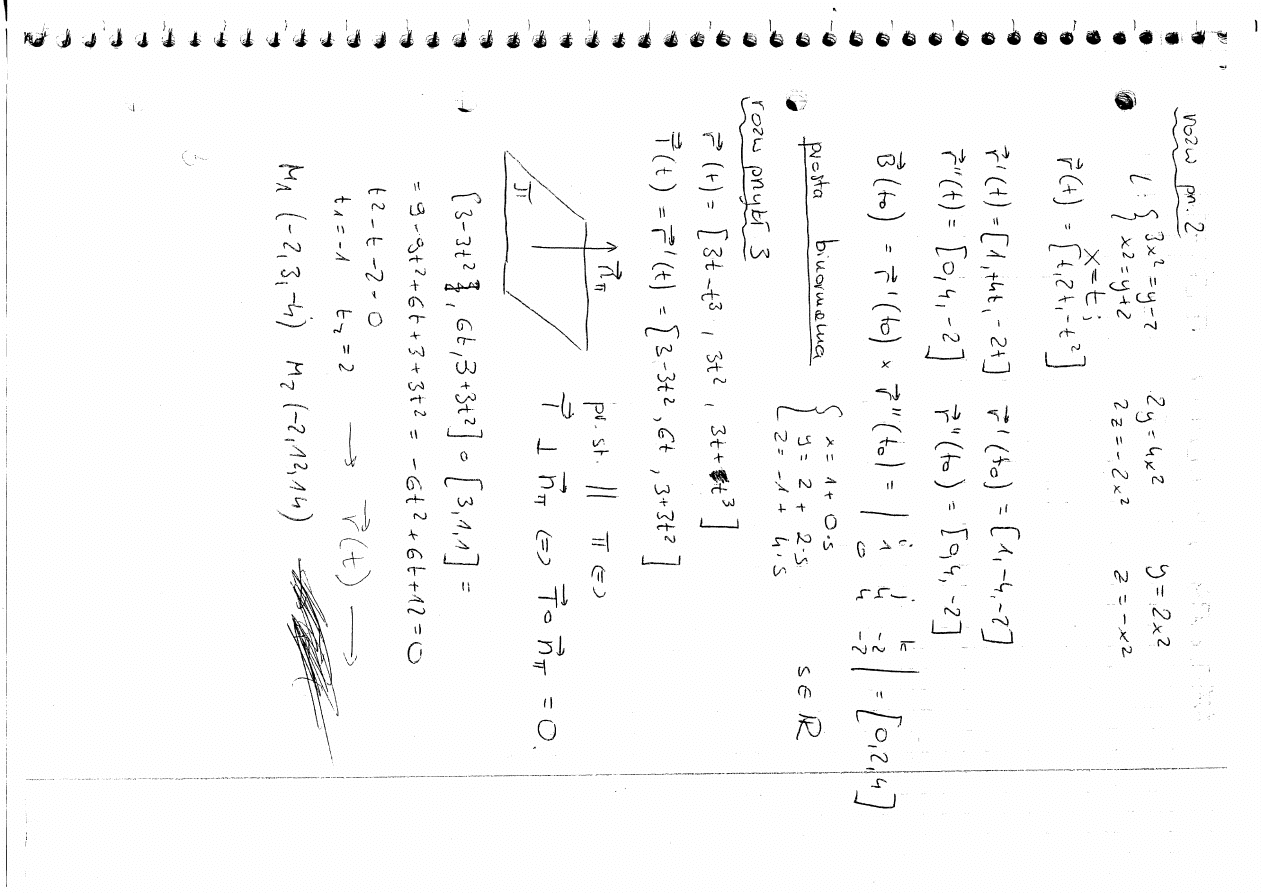 rozw prz. 2
l: { 3x² = y - z   2y = 4x²   y = 2x²
x² = y + z   2z = -2x²   z = -x²
x = t;
r⃗(t) = [t, 2t, -t²]
r⃗'(t) = [1, 4t, -2t]   r⃗'(t₀) = [1, -4, -2]
r⃗''(t) = [0, 4, -2]   r⃗''(t₀) = [0, 4, -2]
B⃗(t₀) = r⃗'(t₀) × r⃗''(t₀) = | i j k / 1 4 -2 / 0 4 -2 | = [0, 2, 4]
prosta binormalna { x = 1 + 0·s
y = 2 + 2·s   s ∈ ℝ
z = -1 + 4·s
rozw przykł 3
r⃗(t) = [3t - t³, 3t², 3t + t³]
T⃗(t) = r⃗'(t) = [3 - 3t², 6t, 3 + 3t²]
n⃗π
π
pr. st. || π ⇔
T⃗ ⊥ n⃗π ⇔ T⃗ ∘ n⃗π = 0.
[3 - 3t², 6t, 3 + 3t²] ∘ [3, 1, 1] =
= 9 - 9t² + 6t + 3 + 3t² = -6t² + 6t + 12 = 0
t² - t - 2 = 0
t₁ = -1   t₂ = 2 → r⃗(t) →
M₁ (-2, 3, -4)   M₂ (-2, 12, 14)